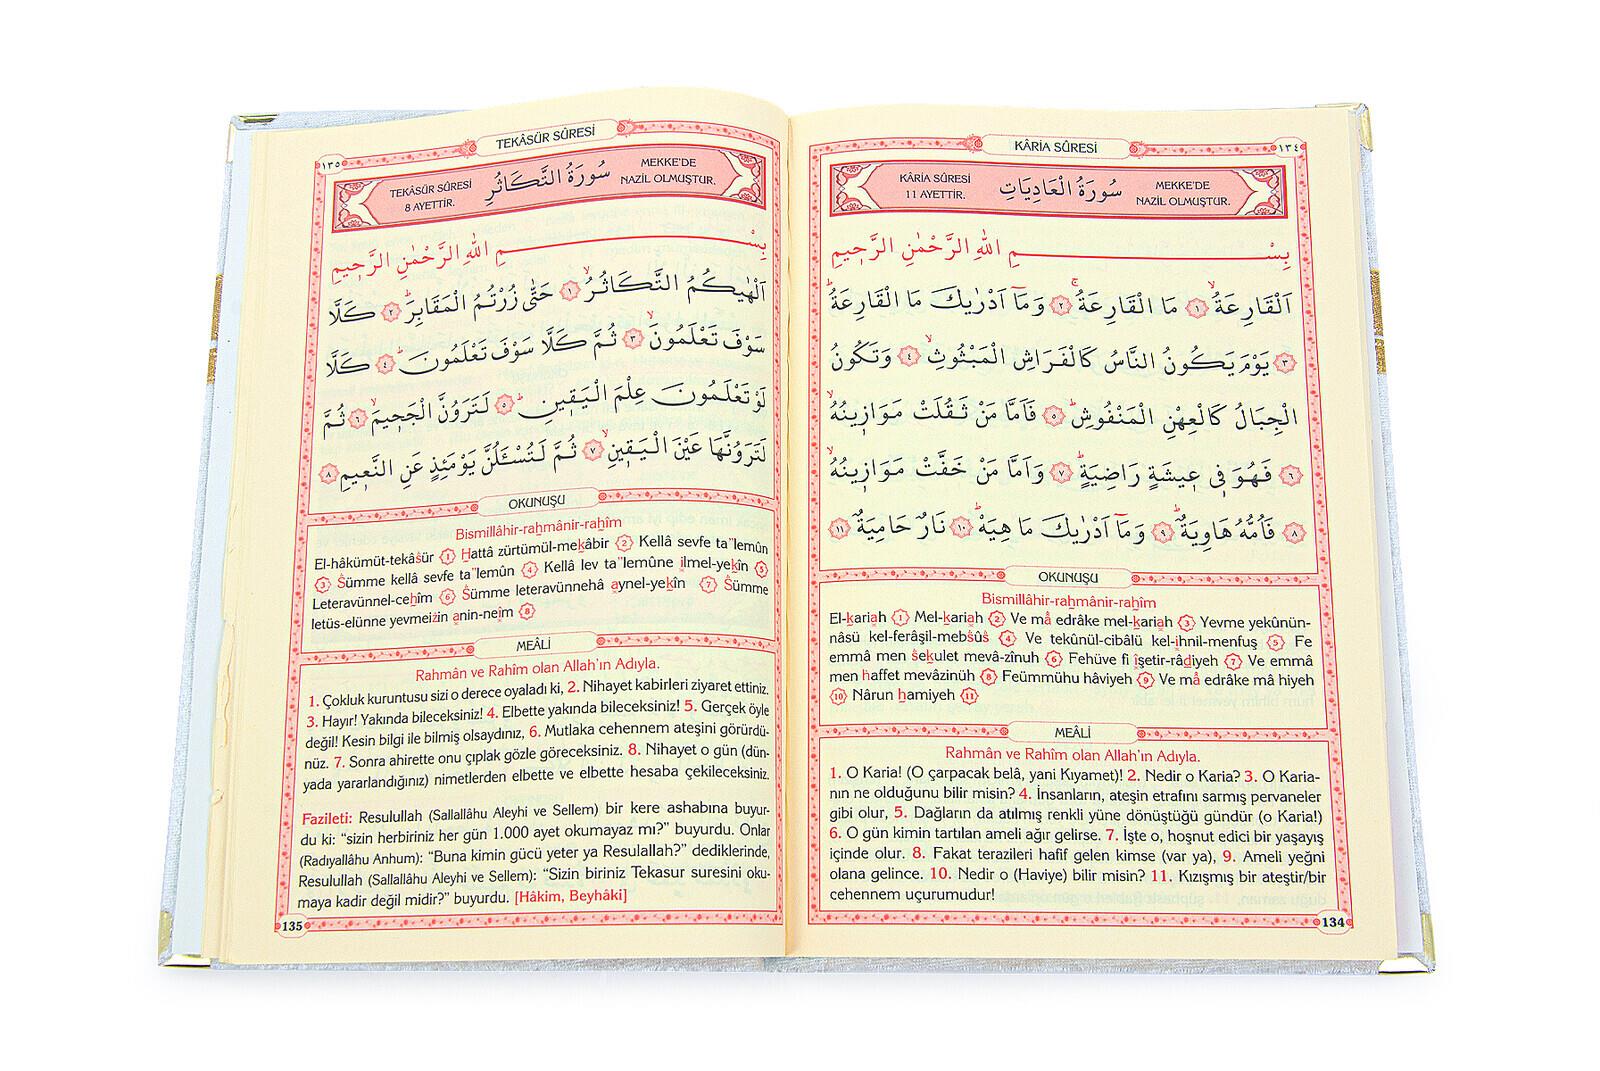 KÂRİA SÛRESİ
١٣٤
KÂRİA SÛRESİ
11 AYETTİR.
سُورَةُ الْعَادِيَاتِ
MEKKE'DE
NAZİL OLMUŞTUR.
بِسْــــــــــمِ اللهِ الرَّحْمٰنِ الرَّحِيمِ
اَلْقَارِعَةُۙ ﴿١﴾ مَا الْقَارِعَةُۚ ﴿٢﴾ وَمَٓا اَدْرٰيكَ مَا الْقَارِعَةُۜ
﴿٣﴾ يَوْمَ يَكُونُ النَّاسُ كَالْفَرَاشِ الْمَبْثُوثِۙ ﴿٤﴾ وَتَكُونُ
الْجِبَالُ كَالْعِهْنِ الْمَنْفُوشِۜ ﴿٥﴾ فَاَمَّا مَنْ ثَقُلَتْ مَوَازِينُهُۙ
﴿٦﴾ فَهُوَ فِي عِيشَةٍ رَاضِيَةٍۜ ﴿٧﴾ وَاَمَّا مَنْ خَفَّتْ مَوَازِينُهُۙ
﴿٨﴾ فَاُمُّهُ هَاوِيَةٌۜ ﴿٩﴾ وَمَٓا اَدْرٰيكَ مَا هِيَهْۜ ﴿١٠﴾ نَارٌ حَامِيَةٌ ﴿١١﴾
OKUNUŞU
Bismillâhir-rahmânir-rahîm
El-kariah 1 Mel-kariah 2 Ve mâ edrâke mel-kariah 3 Yevme yekûnün-
nâsü kel-ferâşil-mebsûs 4 Ve tekûnül-cibâlü kel-ihnil-menfuş 5 Fe
emmâ men sekulet mevâ-zînuh 6 Fehüve fi îşetir-râdiyeh 7 Ve emmâ
men haffet mevâzinüh 8 Feümmühu hâviyeh 9 Ve mâ edrâke mâ hiyeh
10 Nârun hamiyeh 11
MEÂLİ
Rahmân ve Rahîm olan Allah'ın Adıyla.
1. O Karia! (O çarpacak belâ, yani Kıyamet)! 2. Nedir o Karia? 3. O Karia-
nın ne olduğunu bilir misin? 4. İnsanların, ateşin etrafını sarmış pervaneler
gibi olur, 5. Dağların da atılmış renkli yüne dönüştüğü gündür (o Karia!)
6. O gün kimin tartılan ameli ağır gelirse. 7. İşte o, hoşnut edici bir yaşayış
içinde olur. 8. Fakat terazileri hafif gelen kimse (var ya), 9. Ameli yeğni
olana gelince. 10. Nedir o (Haviye) bilir misin? 11. Kızışmış bir ateştir/bir
cehennem uçurumudur!
134
TEKÂSÜR SÛRESİ
١٣٥
TEKÂSÜR SÛRESİ
8 AYETTİR.
سُورَةُ التَّكَاثُرِ
MEKKE'DE
NAZİL OLMUŞTUR.
بِسْــــــــــمِ اللهِ الرَّحْمٰنِ الرَّحِيمِ
اَلْهٰيكُمُ التَّكَاثُرُۙ ﴿١﴾ حَتّٰى زُرْتُمُ الْمَقَابِرَۜ ﴿٢﴾ كَلَّا
سَوْفَ تَعْلَمُونَۙ ﴿٣﴾ ثُمَّ كَلَّا سَوْفَ تَعْلَمُونَۜ ﴿٤﴾ كَلَّا
لَوْ تَعْلَمُونَ عِلْمَ الْيَقِينِۜ ﴿٥﴾ لَتَرَوُنَّ الْجَحِيمَۙ ﴿٦﴾ ثُمَّ
لَتَرَوُنَّهَا عَيْنَ الْيَقِينِۙ ﴿٧﴾ ثُمَّ لَتُسْـَٔلُنَّ يَوْمَئِذٍ عَنِ النَّعِيمِ ﴿٨﴾
OKUNUŞU
Bismillâhir-rahmânir-rahîm
El-hâkümüt-tekâsür 1 Hattâ zürtümül-mekâbir 2 Kellâ sevfe ta''lemûn
3 Sümme kellâ sevfe ta''lemûn 4 Kellâ lev ta''lemûne ilmel-yekîn 5
Leteravünnel-cehîm 6 Sümme leteravünnehâ aynel-yekîn 7 Sümme
letüs-elünne yevmeizin anin-neîm 8
MEÂLİ
Rahmân ve Rahîm olan Allah'ın Adıyla.
1. Çokluk kuruntusu sizi o derece oyaladı ki, 2. Nihayet kabirleri ziyaret ettiniz.
3. Hayır! Yakında bileceksiniz! 4. Elbette yakında bileceksiniz! 5. Gerçek öyle
değil! Kesin bilgi ile bilmiş olsaydınız, 6. Mutlaka cehennem ateşini görürdü-
nüz. 7. Sonra ahirette onu çıplak gözle göreceksiniz. 8. Nihayet o gün (dün-
yada yararlandığınız) nimetlerden elbette ve elbette hesaba çekileceksiniz.
Fazileti: Resulullah (Sallallâhu Aleyhi ve Sellem) bir kere ashabına buyur-
du ki: “sizin herbiriniz her gün 1.000 ayet okumayaz mı?” buyurdu. Onlar
(Radıyallâhu Anhum): “Buna kimin gücü yeter ya Resulallah?” dediklerinde,
Resulullah (Sallallâhu Aleyhi ve Sellem): “Sizin biriniz Tekasur suresini oku-
maya kadir değil midir?” buyurdu. [Hâkim, Beyhâki]
135